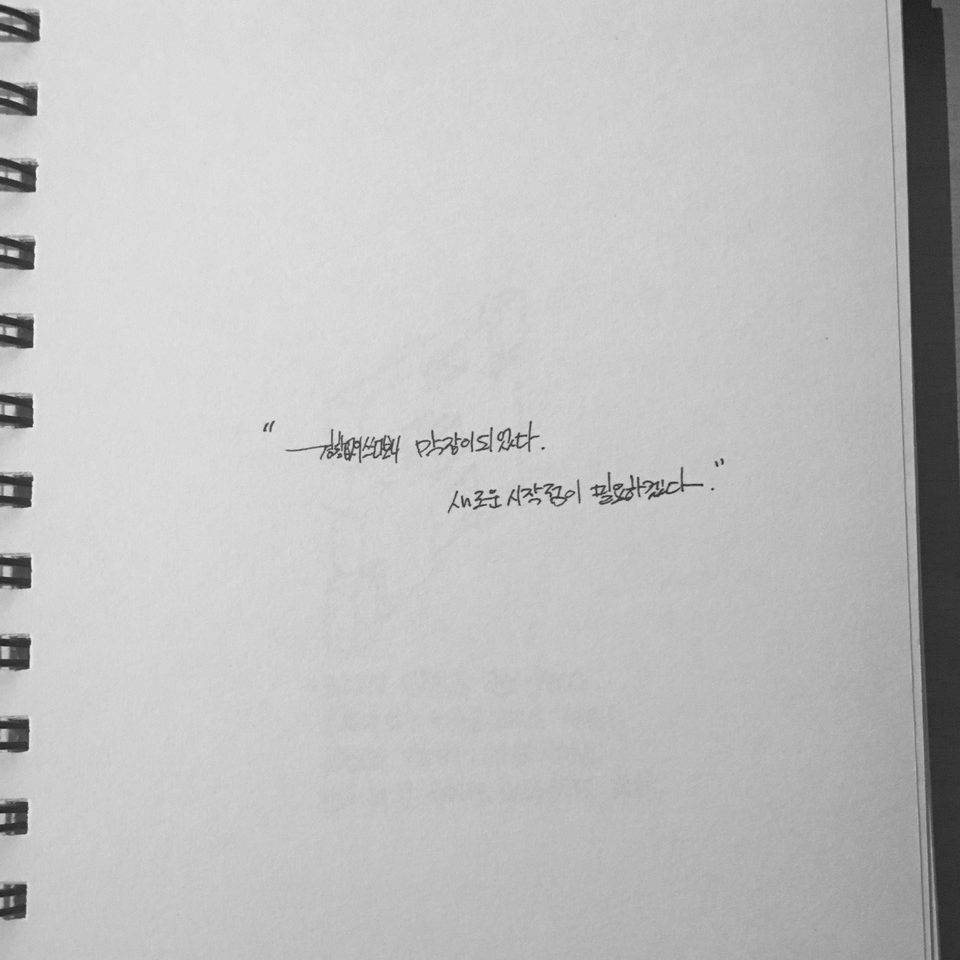 " 막장이 되었다.
새로운 시작점이 필요하겠다."